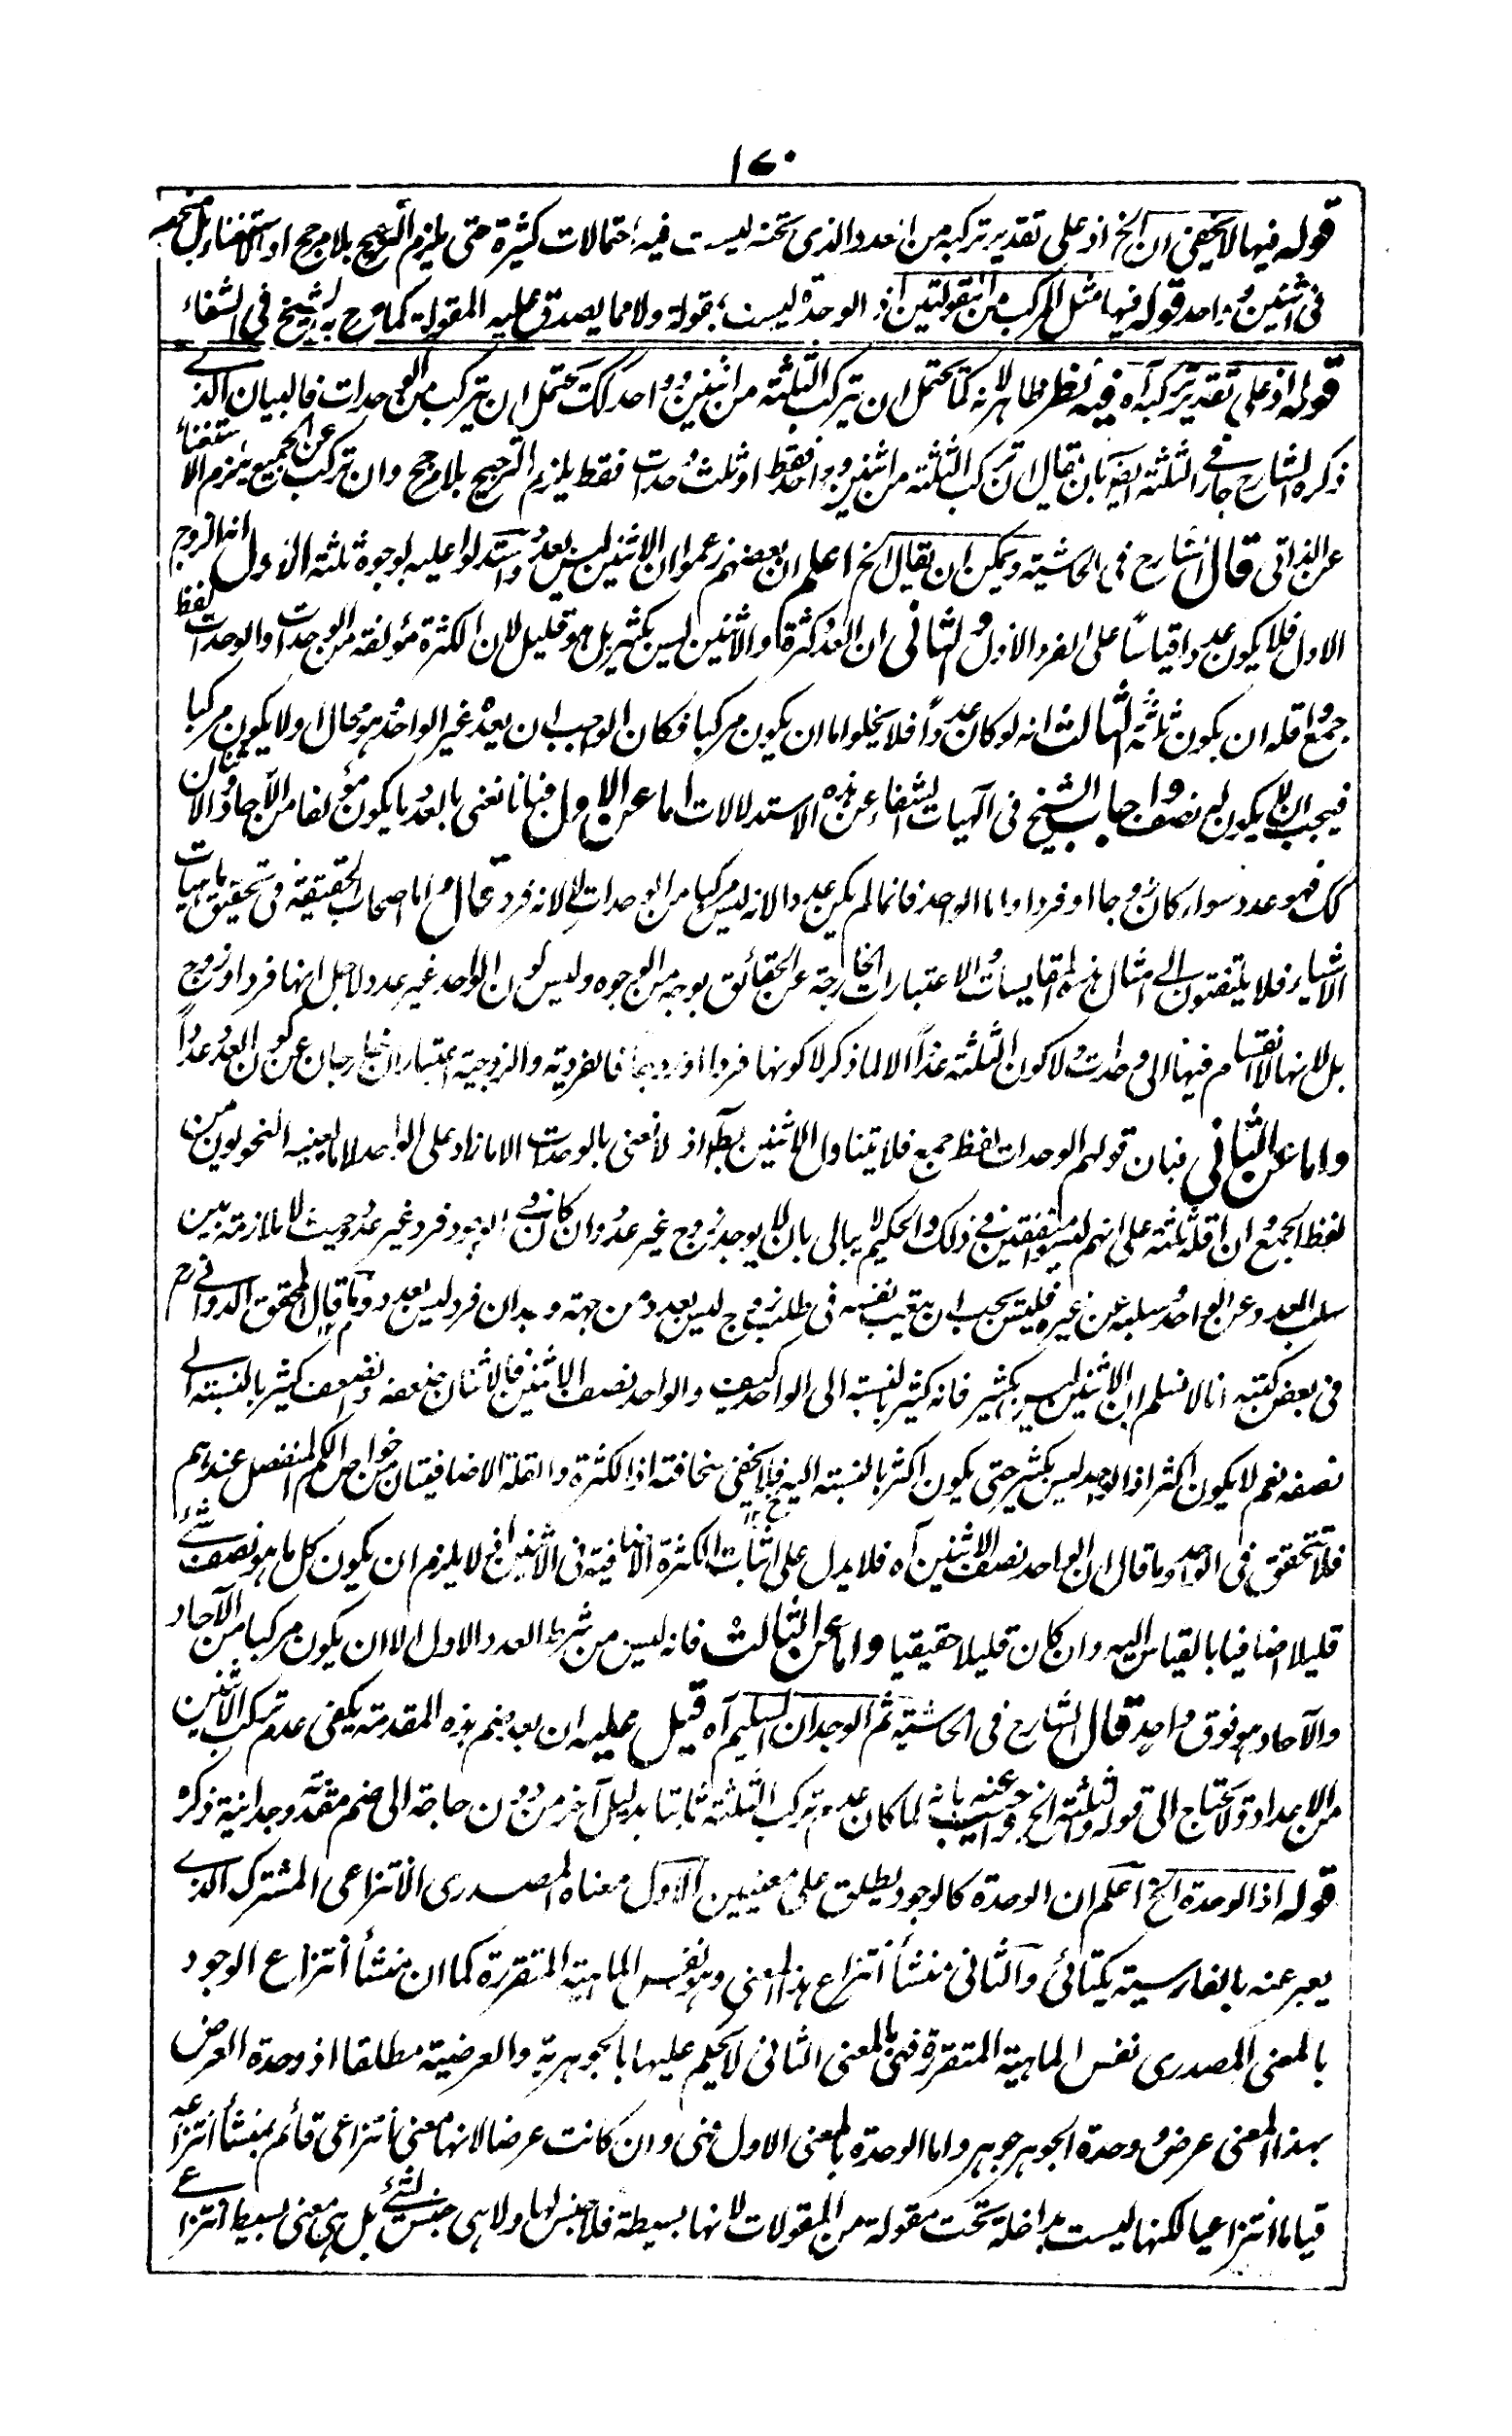 ١٧٠
قوله فيها لا يخفى ان الخ اذ على تقدير تركبه من العدد الذى تحته ليست فيه احتمالات كثيرة حتى يلزم الترجيح بلا مرجح او الاستغناء بل منحصر
فى اثنين وواحد قوله فيها مثل المركب من المقولتين اذ الوحدة ليست بمقولة ولا مما يصدق عليه المقولة كما صرح به الشيخ فى الشفاء
قوله اذ على تقدير تركبه آه فيه نظر ظاهر لانه كما يحتمل ان يتركب الثلثة من اثنين وواحد كك يحتمل ان يتركب من الوحدات فالبيان الذى
ذكره الشارح جار فى الثلثة ايضا بان يقال ان تركب الثلثة من اثنين وواحد فقط او ثلث وحدات فقط يلزم الترجيح بلا مرجح وان تركب عن الجميع يلزم الاستغناء
عن الذاتى قال الشارح فى الحاشية ويمكن ان يقال الخ اعلم ان بعضهم زعموا ان الاثنين ليس بعدد واستدلوا عليه بوجوه ثلثة الاول انها الزوج
الاول فلا يكون عددا قياسًا على الفرد الاول والثانى ان العدد كثرة والاثنين ليس بكثير بل هو قليل لان الكثرة مؤلفة من الوحدات والوحدات لفظ
جمع واقله ان يكون ثلثة الثالث انه لو كان عددًا فلا يخلوا ما ان يكون مركبا فكان الواجب ان يعده غير الواحد وهو محال او لا يكون مركبا
فيجب ان لا يكون له نصف واجاب الشيخ فى آلهيات الشفاء عن هذه الاستدلالات اما عن الاول فبانا نعنى بالعدد ما يكون مؤلفا من الآحاد والاثنان
كك فهو عدد سواء كان زوجا او فردا واما الواحد فانما لم يكن عددا لانه ليس مركبا من الوحدات لا لانه فرد قال واما اصحاب الحقيقة فى تحقيق ماهيات
الاشياء فلا يلتفتون الى امثال هذه المقايسات والاعتبارات الخارجة عن الحقائق بوجه من الوجوه وليس كون الواحد غير عدد لاجل انها فرد او زوج
بل لانها لا انقسام فيها الى وحدات ولا كون الثلثة عددًا الا لما ذكر لا كونها فردا او زوجا فالفردية والزوجية اعتباران خارجان عن كون العدد عددًا
واما عن الثانى فبان قولهم الوحدات لفظ جمع فلا يتناول الاثنين باطل اذ لا نعنى بالوحدات الا ما زاد على الواحد لا ما يعنيه النحويون من
لفظ الجمع وان اقله ثلثة على انهم ليسوا متفقين فى ذلك والحكيم لا يبالى بان لا يوجد زوج غير عدد وان كان فى الوجود فرد غير عدد وحيث لا ملازمة بين
سلب العدد عن الواحد وسلبه عن غيره فليس يجب ان يتعب نفسه فى طلب زوج ليس بعدد من جهة وجدان فرد ليس بعدد وما قال المحقق الدوانى رح
فى بعض كتبه انا لا نسلم ان الاثنين ليس بكثير فانه كثير بالنسبة الى الواحد كيف والواحد نصف الاثنين فالاثنان ضعفه والضعف كثير بالنسبة الى
نصفه نعم لا يكون اكثر اذ الواحد ليس بكثير حتى يكون اكثر بالنسبة اليه فلا يخفى سخافته اذ الكثرة والقلة الاضافيتان من خواص الكم المنفصل عندهم
فلا تتحقق فى الواحد وما قال ان الواحد نصف الاثنين آه فلا يدل على اثبات الكثرة الاضافية فى الاثنين اذ لا يلزم ان يكون كل ما هو نصف شئ
قليلا اضافيا بالقياس اليه وان كان قليلا حقيقيا واما عن الثالث فانه ليس من شرط العدد الاول الا ان يكون مركبا من الآحاد
والآحاد هو فوق واحد قال الشارح فى الحاشية ثم الوجدان السليم آه قيل عليه ان بعد ضم هذه المقدمة يكفى عدم تركب الاثنين
من الاعداد ولا يحتاج الى قوله والثلثة الخ واجيب عنه بانه لما كان عدم تركب الثلثة ثابتا بدليل آخر من دون حاجة الى ضم مقدمة وجدانية ذكره
قوله اذ الوحدة الخ اعلم ان الوحدة كالوجود يطلق على معنيين الاول معناه المصدرى الانتزاعى المشترك الذى
يعبر عنه بالفارسية يكتائى والثانى منشأ انتزاع هذا المعنى وهو نفس الماهية المتقررة كما ان منشأ انتزاع الوجود
بالمعنى المصدرى نفس الماهية المتقررة فهى بالمعنى الثانى لا يحكم عليها بالجوهرية والعرضية مطلقا اذ وحدة العرض
بهذا المعنى عرض ووحدة الجوهر جوهر واما الوحدة بالمعنى الاول فهى وان كانت عرضا لانها معنى انتزاعى قائم بمنشأ انتزاعه
قياما انتزاعيا لكنها ليست بداخلة تحت مقولة من المقولات لانها بسيطة فلا جنس لها ولا هى جنس لشئ بل هى معنى بسيط انتزاعى